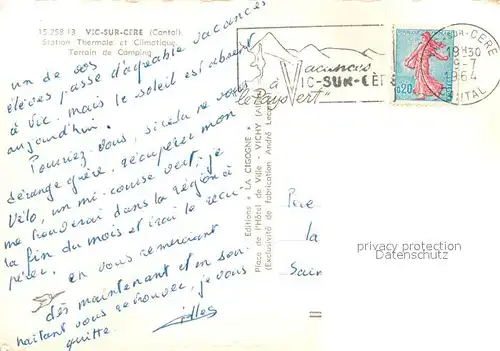 15 258 13 VIC-SUR-CERE (Cantal)
Station Thermale et Climatique
Terrain de Camping
un de vos
élèves passe d'agréable vacances
à Vic. mais le soleil est absent
aujourd'hui.
Pourriez-vous, si cela ne vous
dérange guère, récupérer mon
Vélo, un mi-course vert; je
me trouverai dans la région à
la fin du mois et irai le récu-
pérer.
en vous remerciant
dès maintenant et en sou-
haitant vous retrouver, je vous
quitte.
Gilles
Editions « LA CIGOGNE »
Place de l'Hôtel de Ville - VICHY
(Exclusivité de fabrication André Leconte)
Vacances
à VIC-SUR-CÈRE
le Pays Vert"
0,20
-SUR-CERE
19H30
9-7
1964
CANTAL
Père
la
Sain
privacy protection
Datenschutz